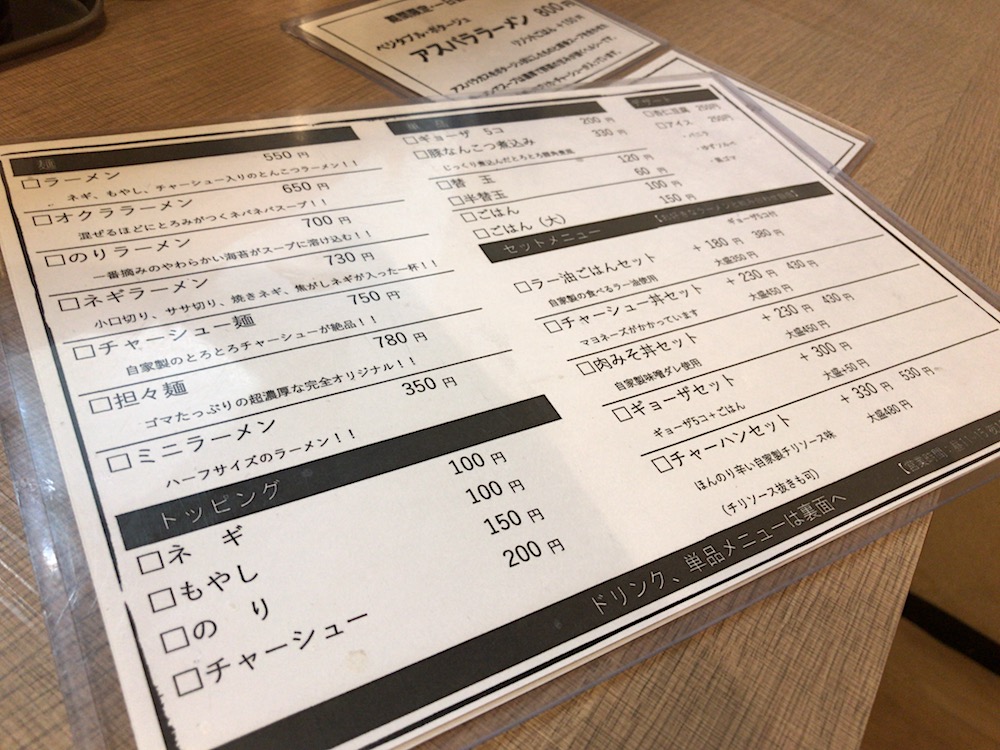 ベジタブル・ポタージュ
アスパララーメン 800円
麺
□ラーメン 550円
ネギ、もやし、チャーシュー入りのとんこつラーメン！！
□オクララーメン 650円
混ぜるほどにとろみがつくネバネバスープ！！
□のりラーメン 700円
一番摘みのやわらかい海苔がスープに溶け込む！！
□ネギラーメン 730円
小口切り、ササ切り、焼きネギ、焦がしネギが入った一杯！！
□チャーシュー麺 750円
自家製のとろとろチャーシューが絶品！！
□担々麺 780円
ゴマたっぷりの超濃厚な完全オリジナル！！
□ミニラーメン 350円
ハーフサイズのラーメン！！
トッピング
□ネ ギ 100円
□もやし 100円
□の り 150円
□チャーシュー 200円
単品
□ギョーザ 5コ 200円
□豚なんこつ煮込み 330円
じっくり煮込んだとろとろ豚角煮風
□替 玉 120円
□半替玉 60円
□ごはん 100円
□ごはん（大） 150円
デザート
□杏仁豆腐 250円
□アイス 250円
・バニラ
・ゆずソルベ
・黒ゴマ
セットメニュー
ギョーザ5コ付
□ラー油ごはんセット +180円 380円
自家製の食べるラー油使用 大盛350円
□チャーシュー丼セット +230円 430円
マヨネーズがかかっています 大盛450円
□肉みそ丼セット +230円 430円
自家製味噌ダレ使用 大盛450円
□ギョーザセット +300円
ギョーザ5コ+ごはん 大盛+50円
□チャーハンセット +330円 530円
ほんのり辛い自家製チリソース味 大盛480円
（チリソース抜きも可）
ドリンク、単品メニューは裏面へ